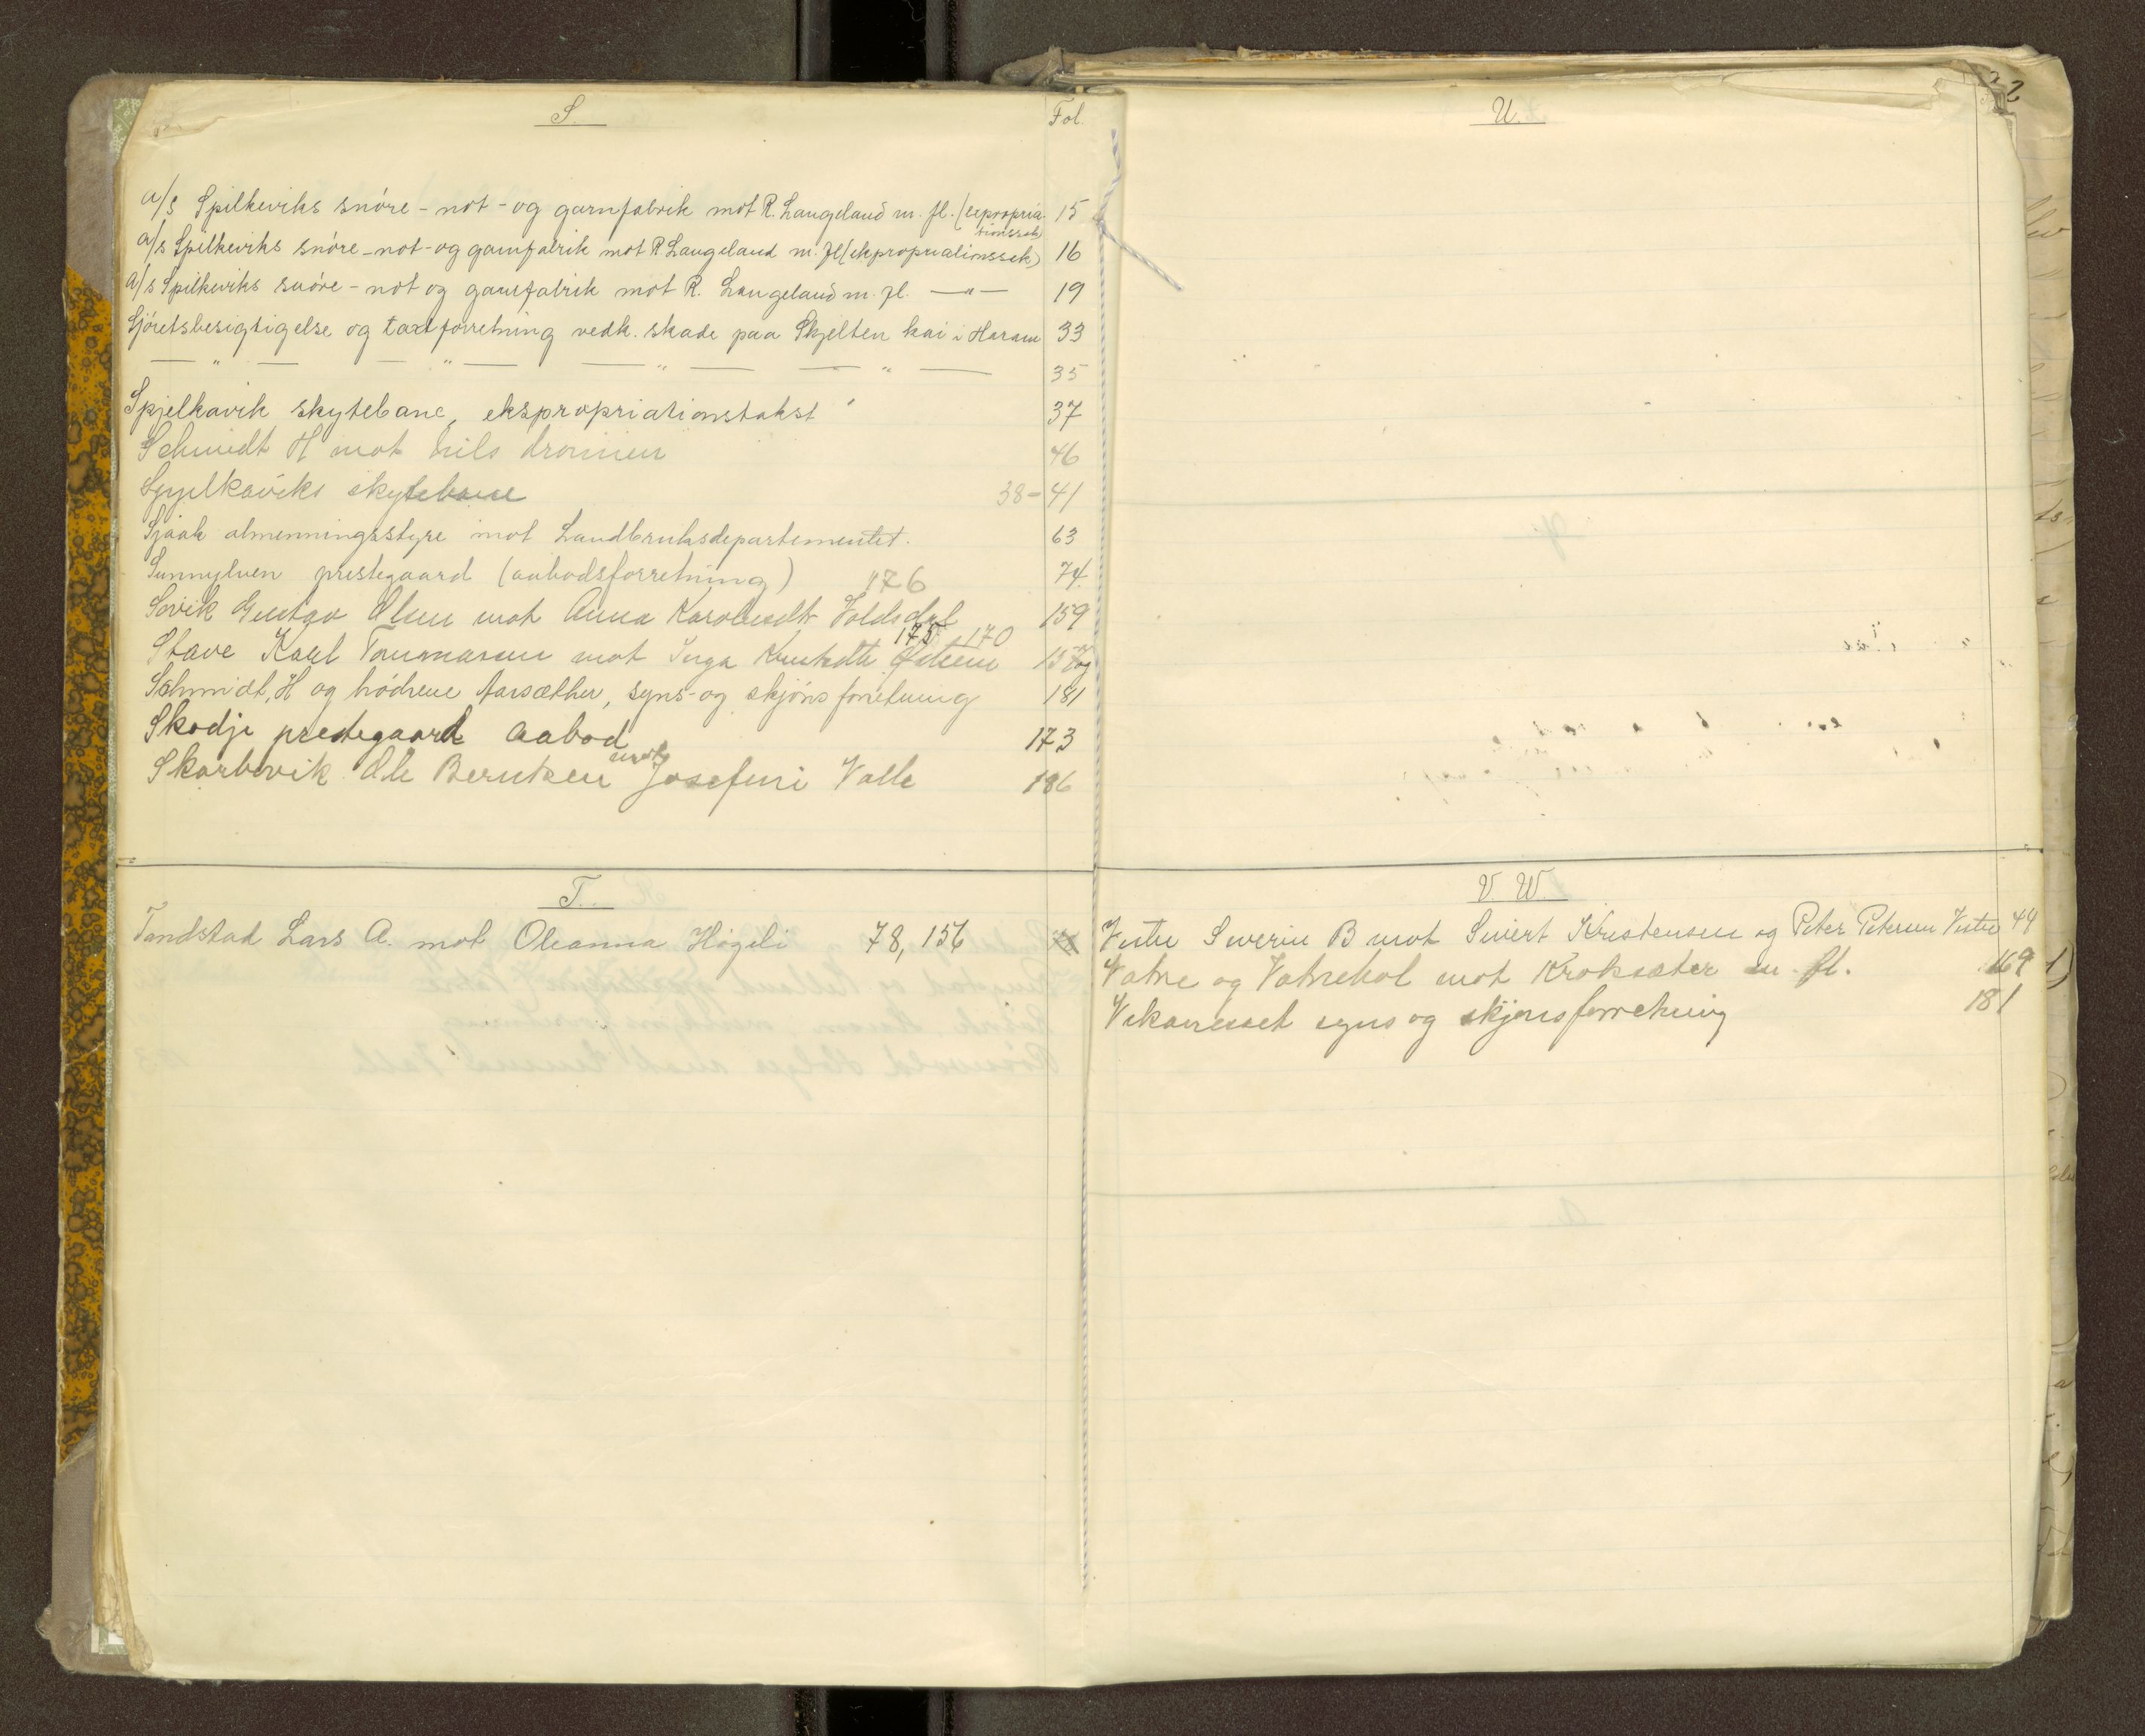 S.
Fol.
a/s Spilkeviks snóre-not-og garnfabrik mot R. Langeland m. fl. (expropria- 15
tionssak)
a/s Spilkeviks snóre-not-og garnfabrik mot R Langeland m. fl (ekspropriationssak) 16
a/s Spilkeviks snóre-not og garnfabrik mot R. Langeland m. fl. —"— 19
Sjóretsbesigtigelse og taxtforretning vedk. skade paa Skjelten kai i Haram 33
—"— —"— —"— —"— 35
Spjelkavik skytebane, ekspropriationstakst 37
Schmidt H mot Nils 46
Spjelkaviks skytebane 38-41
Sjaak almenningsstyre mot Landbruksdepartementet. 63
Sunnylven prestegaard (aabodsforretning) "76 74
Søvik Gustav Olsen mot Anna Voldsdal 159
175 170
Stave Karl Tommasen mot Inga 157 og
Schmidt, H og bródrene Aarsæther, syns-og skjóns forretning 181
Skodje prestegaard aabod 173
Skarbøvik Ole Berntsen mot Josefine Valle 186
T.
Tandstad Lars A. mot Oleanna Högeli 78, 156
U.
V W.
Vestre Severin B mot Sivert Kristensen og Peter Petersen Vestre 44
Vatne og Vatnehol mot Kroksæter m. fl. 169
syns og skjønsforretning 181